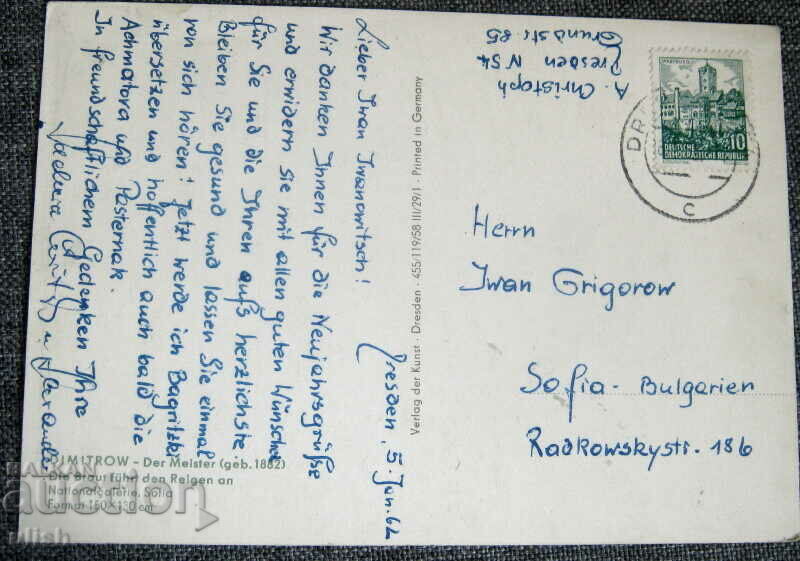 Dresden, 5. Jan. 62
Lieber Iwan Iwanowitsch!
Wir danken Ihnen für die Neujahrsgrüße
und erwidern sie mit allen guten Wünschen
für Sie und die Ihren aufs herzlichste.
Bleiben Sie gesund und lassen Sie einmal
von sich hören! Jetzt werde ich Bagritzki
übersetzen und hoffentlich auch bald die
Achmatova und Pasternak.
In freundschaftlichem Gedenken Ihre
DIMITROW - Der Meister (geb. 1882)
Die Braut führt den Reigen an
Nationalgalerie, Sofia
Format 160×130 cm
Verlag der Kunst · Dresden · 455/119/58 III/29/1 · Printed in Germany
A. Christoph
Dresden N 54
Grundstr. 85
WARTBURG
10
DEUTSCHE
DEMOKRATISCHE REPUBLIK
DR
c
Herrn
Iwan Grigorow
Sofia - Bulgarien
Radkowskystr. 186
BALKAN
auction
ulish